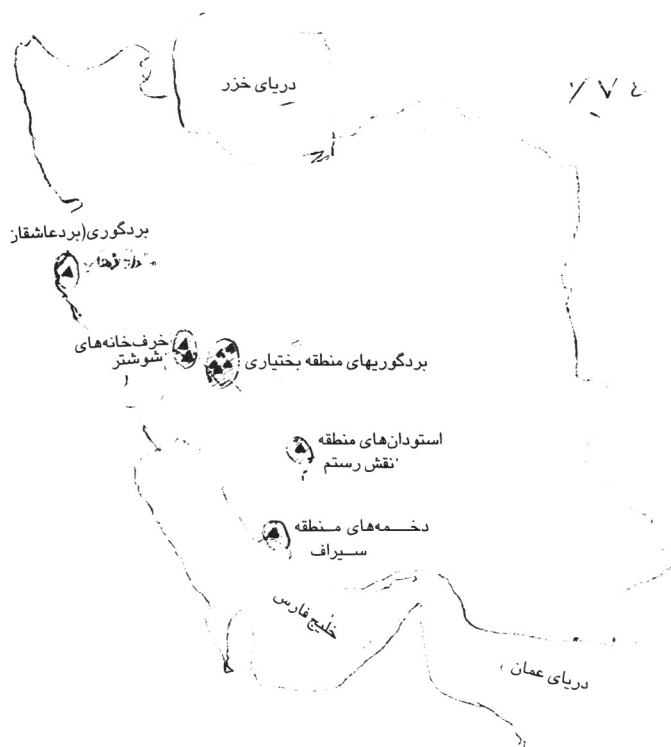 دریای خزر
بردگوری(بردعاشقان
خرف‌خانه‌های
شوشتر
بردگوریهای منطقه بختیاری
استودان‌های منطقه
نقش رستم
دخـــمه‌های مــنطقه
ســیراف
خلیج فارس
دریای عمان